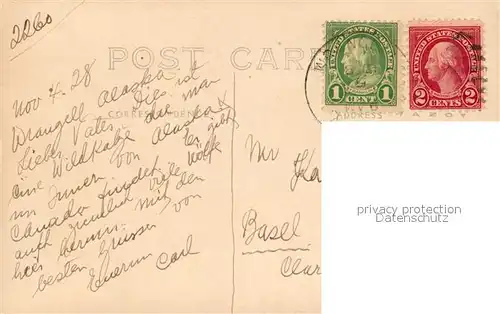 2260
POST CARD
UNITED STATES POSTAGE
1 CENT 1
UNITED STATES POSTAGE
2 CENTS 2
CORRESPONDENCE
ADDRESS
Nov 4. 28
Wrangell Alaska
Lieber Vater Dies ist
eine Wildkatze die man
im Innern von Alaska
Canada findet. Es gibt
auch ziemlich viele Wölfe
hier herum. mit den
besten Grüssen von
Euerm Carl
Mr
Basel
privacy protection
www.oldthing.de